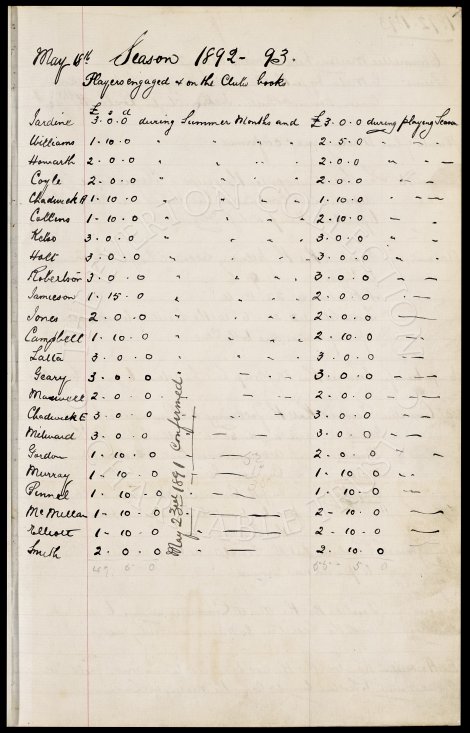 May 18th Season 1892-93.
Players engaged & on the Clubs book
£ s d
Jardine 3.0.0 during Summer Months and £3.0.0 during playing Season
Williams 1-10.0 " " " " 2.5.0 " "
Howarth 2.0.0 " " " " 2.0.0 " "
Coyle 2.0.0 " " " " 2.0.0 " "
Chadwick A 1-10.0 " " " " 1.10.0 " "
Collins 1-10.0 " " " " 2.10.0 " "
Kelso 3.0.0 " " " " 3.0.0 " "
Holt 3.0.0 " " " " 3.0.0 " "
Robertson 3.0.0 " " " " 3.0.0 " "
Jamieson 1.15.0 " " " " 2.0.0 " "
Jones 2.0.0 " " " " 2.0.0 " "
Campbell 1.10.0 " " " " 2.10.0 " "
Latta 3.0.0 " " " " 3.0.0 " "
Geary 3.0.0 " " " 3.0.0 " "
Maxwell 2.0.0 " " " 2.0.0 " "
Chadwick E 3.0.0 " " " 3.0.0 " "
Milward 3.0.0 " " " 3.0.0 " "
Gordon 1.10.0 " " " 2.0.0 " "
Murray 1-10.0 " " " 1-10.0 " "
Pinnel 1-10.0 " " " 1.10.0 " "
McMillan 1-10.0 " " " 2.10.0 " "
Elliott 1-10.0 " " " 2.0.0 " "
Smith 2.0.0 " " 2.10.0 " "
May 23rd 1891 Confirmed.
49 5 0 55 5 0
EVERTON COLLECTION
CHARITABLE TRUST